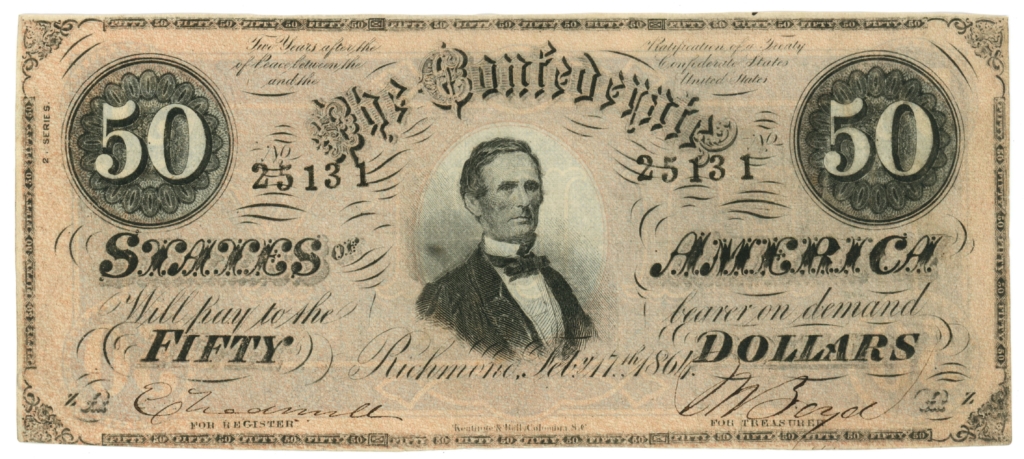 Two Years after the Ratification of a Treaty
of Peace between the Confederate States
and the United States
The Confederate
50 50
2 SERIES.
No 25131 No 25131
STATES OF AMERICA
Will pay to the bearer on demand
FIFTY DOLLARS
Richmond, Feby. 17th, 1864.
FOR REGISTER FOR TREASURER
Keatinge & Ball, Columbia S.C.